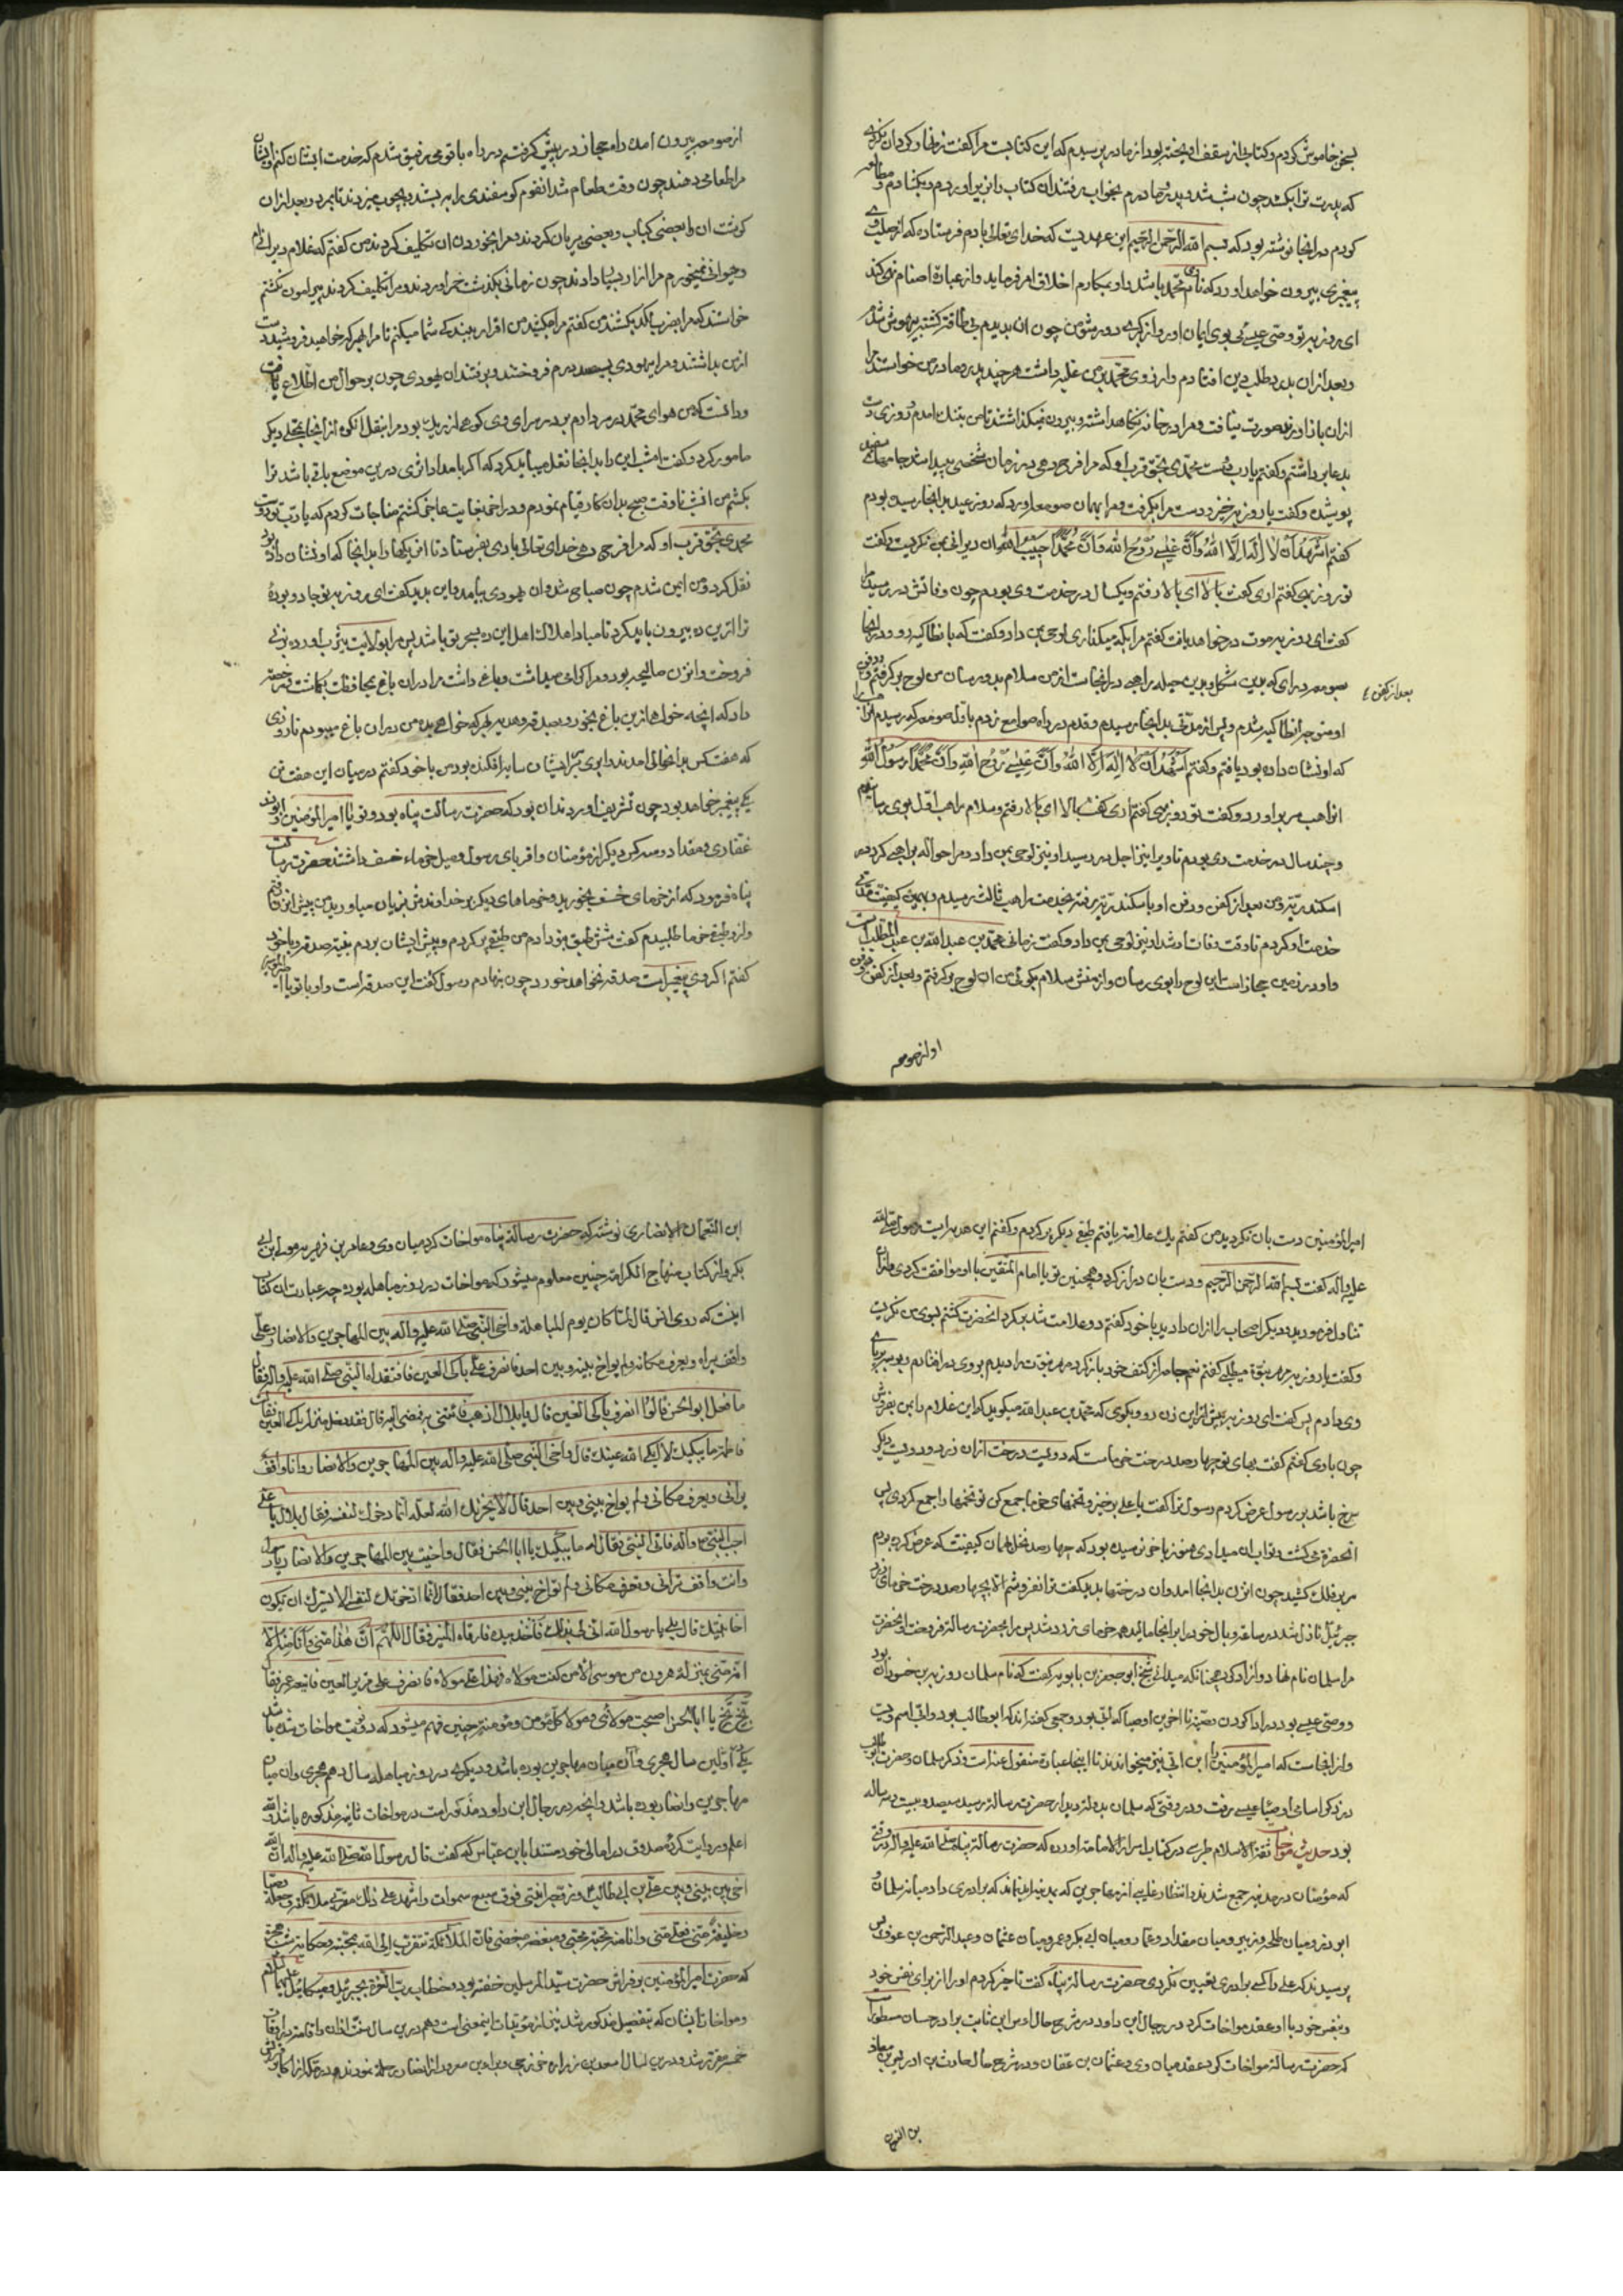 بسخن خاموش کردم و کتابی از سقف اویخته بود از مادر پرسیدم که این کتاب چیست مرا گفت زنهار کرد آن نگردی
که پدرت ترا بکشد چون شب شد و پدر و مادرم بخواب رفتند ان کتاب را بزیر اوردم و بکشادم و مطالعه
کردم در انجا نوشته بود که بسم الله الرحمن الرحیم این عهدیست که خدای تعالی بادم فرستاده که از صلب وی
پیغمبری بیرون خواهد اورد که نام وی محمد باشد و او بمکارم اخلاق امر فرماید و از عبادة اصنام نهی کند
ای روزبه تو وصی عیسی بوی ایمان اور و از کبری دور شو من چون ان بدیدم بی طاقت گشته بیهوش شدم
و بعد از ان بدرد طلب دین افتادم و ارزوی محمد بر من غلبه داشت هر چند پدر و مادر من خواستند مرا
از ان باز دارند صورت نیافت و مرا در خانه نگاهداشته و بیرون نمیگذاشتند تا من بتنک امدم و روزی دست
بدعا برداشتم و گفتم یارب بحق محمد و بحق قرب او که مرا فرجی دهی در زمان شخصی پیدا شد جامهای سفید
پوشیده و گفت یا روزبه برخیز و دست مرا بگرفت و مرا بهمان صومعه اورد که روز عید بدانجا رسیده بودم
گفتم اشهد ان لا اله الا الله و ان عیسی روح الله و ان محمدا حبیب الله ان دیرانی بمن نگریست و گفت
تو روزبهی گفتم اری گفت بالا ای بالا رفتم و یکسال در خدمت وی بودم چون وفاتش در رسید مرا
گفت ای روزبه موت درخواهد یافت گفتم مرا بکه میگذاری لوحی بمن داد و گفت که بانطاکیه رو و در انجا
صومعه در ای که بدین شکل و بدین حیله راهبی در انجاست از من سلام بدو رسان من لوح برگرفتم و دفن
بعد از کفن
او متوجه انطاکیه شدم و پس از مدتی بدانجا رسیدم و قدم در راه صوامع زدم باول صومعه که رسیدم
که او نشان داده بود یافتم و گفتم اشهد ان لا اله الا الله و ان عیسی روح الله و ان محمدا رسول الله
ان راهب سر براورد و گفت تو روزبهی گفتم اری گفت بالا ای بالا رفتم و سلام راهب اول بوی رسانیدم
و چند سال در خدمت وی بودم تا ویرا نیز اجل در رسید او نیز لوحی بمن داد و مرا حواله براهبی کرد در
اسکندریه و من بعد از کفن و دفن او باسکندریه رفته بخدمت راهب ثالث رسیدم و بهمین کیفیت مدتی
خدمت او کردم تا وقت وفات او شد او نیز لوحی بمن داد و گفت زمانی محمد بن عبدالله بن عبدالمطلب است
و او در زمین حجاز است این لوح را بوی رسان و از منش سلام بگوی من ان لوح برگرفتم و بعد از کفن و دفن
او از صومعه
از صومعه بیرون امده راه حجاز در پیش گرفتم در راه با قومی رفیق شدم که خدمت ایشان کنم و ایشان
مرا طعامی دهند چون وقت طعام شد انقوم گوسفندی را ببستند و بچوب میزدند تا بمرد و بعد از ان
گوشت ان را بعضی کباب و بعضی بریان کردند و مرا بخوردن ان تکلیف کردند من گفتم که غلام دیرانی ام
و حیوانی نمیخورم مرا ازار بسیار دادند چون زمانی بگذشت خمر اوردند و مرا تکلیف کردند پیرامون نگشتم
خواستند که مرا بضرب لگد بکشند من گفتم مرا مکشید من اقرار ببندگی شما میکنم تا مرا بهر که خواهید فروشید دست
از من بداشتند و مرا بیهودی بسیصد درم فروختند و برفتند ان یهودی چون بر حوال من اطلاع یافت
و دانست که من هوای محمد در سر دارم بر در سرای وی کوهی از ریک بود مرا بنقل انکوه از انجا بمحلی دیگر
مامور کرد و گفت امشب این را بدانجا نقل میباید کرد که اگر بامداد اثری در این موضع باقی باشد ترا
بکشم من انشب تا وقت صبح بدان کار قیام نمودم و در اخر بغایت عاجز گشتم مناجات کردم که یارب تو دوست
محمدی بحق قرب او که مرا فرجی دهی خدای تعالی بادی بفرستاد تا ان ریکها را بدانجا که او نشان داده بود
نقل کرد و من ایمن شدم چون صباح شد و ان یهودی بیامد و این بدید گفت ای روزبه تو جادو بوده
ترا از این ده بیرون باید کرد تا مبادا هلاک اهل این ده بسحر تو باشد پس مرا بولایت یثرب اورده بزنی
فروخت و ان زن صالحه بود و مرا گرامی میداشت و باغی داشت مرا در ان باغ بمحافظت بگماشت و رخصت
داد که انچه خواهی از این باغ بخور و بصدقه و هدیه بهر که خواهی بده من در ان باغ میبودم تا روزی
که هفت کس بدانحوالی امدند و ابری بر سر ایشان سایه افکنده بود من با خود گفتم در میان این هفت تن
یکی پیغمبر خواهد بود چون تشریف اوردند ان بود که حضرت رسالت پناه بود و تو یا امیرالمؤمنین و ابوذر
غفاری و مقداد و سه کس دیگر از مؤمنان و اقربای رسول و میل خرماء خسف داشتند حضرت رسالت
پناه فرمود که از خرمای خسف بخورید و خرماهای دیگر بر خداوندش بزیان میاورید من پیش ان زن رفتم
و از و طبقی خرما طلبیدم گفت شش طبق بتو دادم من طبقی پر کردم و پیش ایشان بردم بنیت صدقه و با خود
گفتم اگر وی پیغمبر است صدقه نخواهد خورد چون بنهادم رسول گفت این صدقه است و او با تو یا امیر
امیرالمؤمنین دست بان نکردید من گفتم یک علامت یافتم طبقی دیگر پر کردم و گفتم این هدیه است رسول صلی الله
علیه و اله گفت بسم الله الرحمن الرحیم و دست بان دراز کرد و همچنین تو یا امام المتقین با او موافقت کردی و از ان
تناول فرمودید و دیگر اصحاب را از ان دادید با خود گفتم دو علامت شد بر گرد انحضرت گشتم بسوی من نگریست
و گفت یا روزبه مهر نبوة میطلبی گفتم نعم جامه از کتف خود باز کرد مهر نبوت را دیدم بر وی در افتادم و بوسه بر پای
وی دادم پس گفت ای روزبه پیش از این زن رو و بگوی که محمد بن عبدالله میگوید که این غلام را بمن بفروش
چون بادی گفتم گفت بهای تو چهار صد درخت خرماست که دویست درخت از ان زرد و دویست دیگر
سرخ باشد بر رسول عرض کردم رسول ترا گفت یا علی برخیز و تخمهای خرما جمع کن تو تخمها را جمع کردی پس
انحضرت می کشت و تو اب ان میدادی هنوز باخر نرسیده بود که چهار صد نخل بهمان کیفیت که عرض کرده بودم
سر بفلک کشید چون ان زن بدانجا امد و ان درختها بدید گفت ترا نفروشم الا بچهار صد درخت خرمای زرد
جبرئیل نازل شد در ساعت و بال خود را بر انجا مالید همه خرمای زرد شد پس مرا بحضرت رسالت فروخت و انحضرت
مرا سلمان نام نهاد و ازاد کرد همچنانکه میدانی شیخ ابوجعفر بن بابویه گفت که نام سلمان روزبه بن خشبوذان بود
و وصی وصی عیسی بود در ادا کردن وصیت تا اخرین اوصیا که ابی بود و جمعی گفته اند که ابوطالب بود و ابی اسم ویست
و از اینجاست که امیرالمؤمنین را ابن ابی نیز میخوانند تا اینجا عبارة منقول عنه است و ذکر سلمان و حضرت ابوطالب
در ذکر اسامی اوصیا عیسی رفت و در وقتی که سلمان بدولت دیدار حضرت رسالت رسید سیصد و بیست و سه ساله
بود حدیث مواخات ثقة الاسلام طبرسی در کتاب اسرار الامامة اورده که حضرت رسالت پناه صلی الله علیه و اله در وقتی
که مؤمنان در مدینه جمع شدند و انتظار علی از مهاجرین که بمدینه ایند نماند که برادری داد میانه سلمان و
ابوذر و میان طلحه و زبیر و میان مقداد و عمار و میان ابی بکر و عمر و میان عثمان و عبدالرحمن بن عوف پس
پرسیدند که علی را کسی برادری تعیین نکردی حضرت رسالت پناه گفت تاخیر کردم او را از برای نفس خود
و بنفس خود با او عقد مواخات کرد در رجال ابن داود در شرح حال اوس ابن ثابت برادر حسان مسطور است
که حضرت رسالت مواخات کرد عقد میان وی و عثمان بن عفان و در شرح حال حارث بن ادریس بن معاذ
بن النعمان
ابن النعمان الانصاری نوشته که حضرت رسالت پناه مواخات کرد میان وی و عامر بن فهیره مولی ابن ابی
بکر و از کتاب منهاج الکرامة چنین معلوم میشود که مواخات در روز مباهله بوده چه عبارت ان کتاب
اینست که روی انس قال لما کان یوم المباهلة و اخی النبی صلی الله علیه و اله بین المهاجرین و الانصار و علی
واقف یراه و یعرف مکانه و لم یواخ بینه و بین احد فانصرف علی باکی العین فافتقده النبی صلی الله علیه و اله فقال
ما فعل ابو الحسن قالوا انصرف باکی العین قال یا بلال اذهب فأتنی به فمضی الیه قال فقد دخل منزله باکی العین فقالت
فاطمة ما یبکیک لا ابکی الله عینیک قال واخی النبی صلی الله علیه و اله بین المهاجرین و الانصار و انا واقف
یرانی و یعرف مکانی و لم یواخ بینی و بین احد قال لا یحزنک الله لعله انما ادخرک لنفسه فقال بلال یا علی
اجب النبی ص و اله فاتی النبی فقال له ما یبکیک یا ابا الحسن فقال واخیت بین المهاجرین و الانصار یا رسول
و انت واقف ترانی و تعرف مکانی و لم تواخ بینی و بین احد فقال انما ادخرتک لنفسی الا یسرک ان تکون
اخا نبیک قال بلی یا رسول الله انی لی بذلک فاخذ بیده فارقاه المنبر فقال اللهم ان هذا منی و انا منه الا
انه منی بمنزلة هرون من موسی الا من کنت مولاه فهذا علی مولاه فانصرف علی قریر العین فاتبعه عمر فقال
بخ بخ یا ابا الحسن اصبحت مولای و مولا کل مؤمن و مؤمنة چنین فهم میشود که دو نوبت مواخات شده باشد
یکی در اولین سال هجری و ان میان مهاجرین بوده باشد و دیگری در روز مباهله سال دهم هجری و ان میان
مهاجرین و انصار بوده باشد و انچه در رجال ابن داود مذکور است در مواخات ثانیه مذکوره باشد و الله
اعلم و روایت کرده صدوق در امالی خود مستندا بابن عباس که گفت قال رسول الله صلی الله علیه و اله ان الله
اخی بینی و بین علی بن ابی طالب و زوجه ابنتی فوق سبع سموات و اشهد علی ذلک مقربی ملائکته و جعله وصیا
و خلیفة فعلی منی و انا منه محبه محبی و مبغضه مبغضی فان الملائکة تتقرب الی الله بمحبته و حکایت شب هجرت
که حضرت امیرالمؤمنین بر فراش حضرت سید المرسلین خفته بود و خطاب رب العزة بجبرئیل و میکائیل علیهما السلام
و مواخات ایشان که بتفصیل مذکور شد نیز از مؤیدات اینمعنی است و هم در این سال سنت اذان و اقامت در اوقات
خمسه مقرر شد و در این سال اسعد بن زراره خزرجی و براء بن معرور از انصار رحلت نمودند و در مکه از کفار